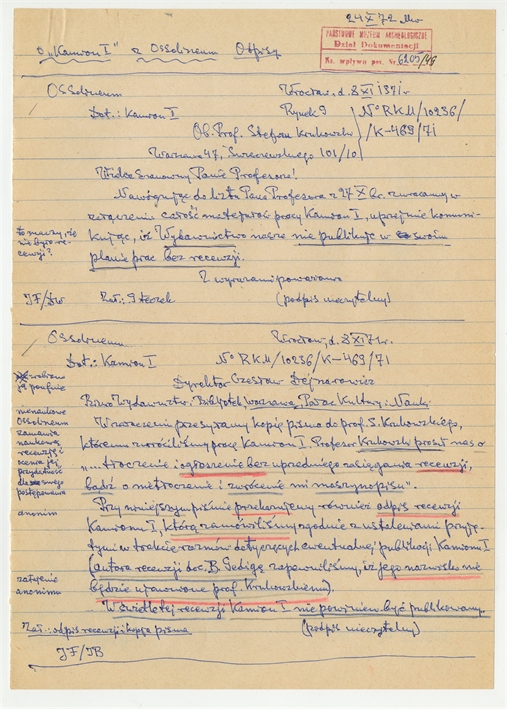 24 X 72
PAŃSTWOWE MUZEUM ARCHEOLOGICZNE
Dział Dokumentacji
Nr. wpływu poz. Nr. 6205/49
O „Kamion I” z Ossolineum Odpisy
Ossolineum
Wrocław, d. 8 XI 1971 r.
Dot.: Kamion I
Rynek 9
N° RKM/10236/
/K-469/71
Ob. Prof. Stefan Krukowski
Warszawa 47, Świerczewskiego 101/10
Wielce Szanowny Panie Profesorze!
Nawiązując do listu Pana Profesora z 27 X br. zwracamy w
załączeniu całość materiałów pracy Kamion I, uprzejmie komuni-
kując, iż Wydawnictwo nasze nie publikuje w swoim
planie prac bez recenzji.
to znaczy, że
nie było re-
cenzji?
Z wyrazami poważania
JF/
Zał.: 9 teczek
(podpis nieczytelny)
Ossolineum
Wrocław, d. 8 XI 71 r.
Dot.: Kamion I
N° RKM/10236/K-469/71
Dyrektor Czesław Dejnarowicz
Biuro Wydawnictw i Bibliotek, Warszawa, Pałac Kultury i Nauki
W załączeniu przesyłamy kopię pisma do prof. S. Krukowskiego,
któremu zwróciliśmy pracę Kamion I. Profesor Krukowski prosił nas o
„... tłoczenie i ogłoszenie bez uprzedniego zasięgania recenzji,
bądź o nietłoczenie i zwrócenie mi maszynopisu”.
Przy niniejszym piśmie przekazujemy również odpis recenzji
Kamionu I, którą zamówiliśmy zgodnie z ustaleniami przyję-
tymi w trakcie rozmów dotyczących ewentualnej publikacji Kamionu I
(autora recenzji doc. B. Gediga zapewniliśmy, iż jego nazwisko nie
będzie ujawnione prof. Krukowskiemu).
W świetle tej recenzji Kamion I nie powinien być publikowany.
zrobiono
ją poufnie
nienaukowe
Ossolineum
zamawia
naukową
recenzję i
ocenia jej
przydatność
dla swego
postępowania
anonim
zatajenie
anonimu
Zał.: odpis recenzji i kopia pisma
(podpis nieczytelny)
JF/JB